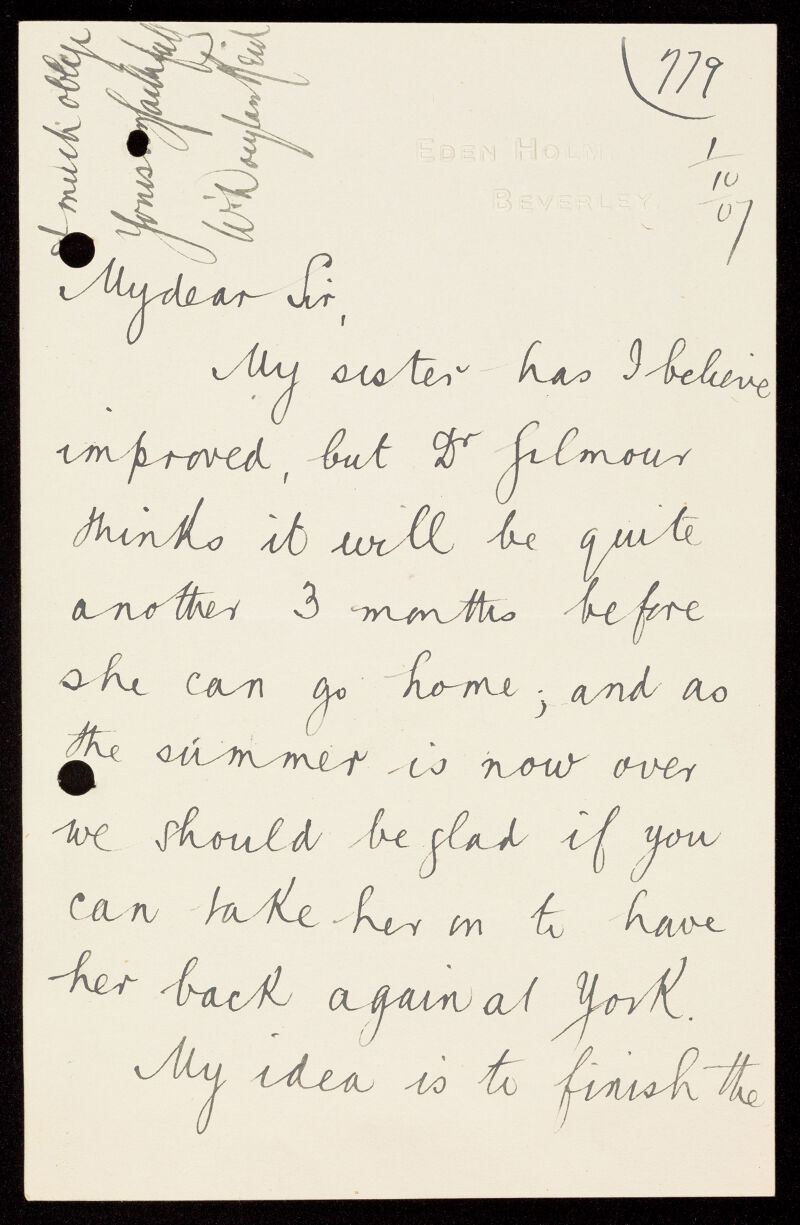 779
EDEN HOLM
BEVERLEY.
1/10/07
My dear Sir,
My sister has I believe
improved, but Dr Gilmour
thinks it will be quite
another 3 months before
she can go home; and as
the summer is now over
we should be glad if you
can take her on to have
her back again at York.
My idea is to finish the
& much oblige
Yours faithfully
W. Douglas Reid